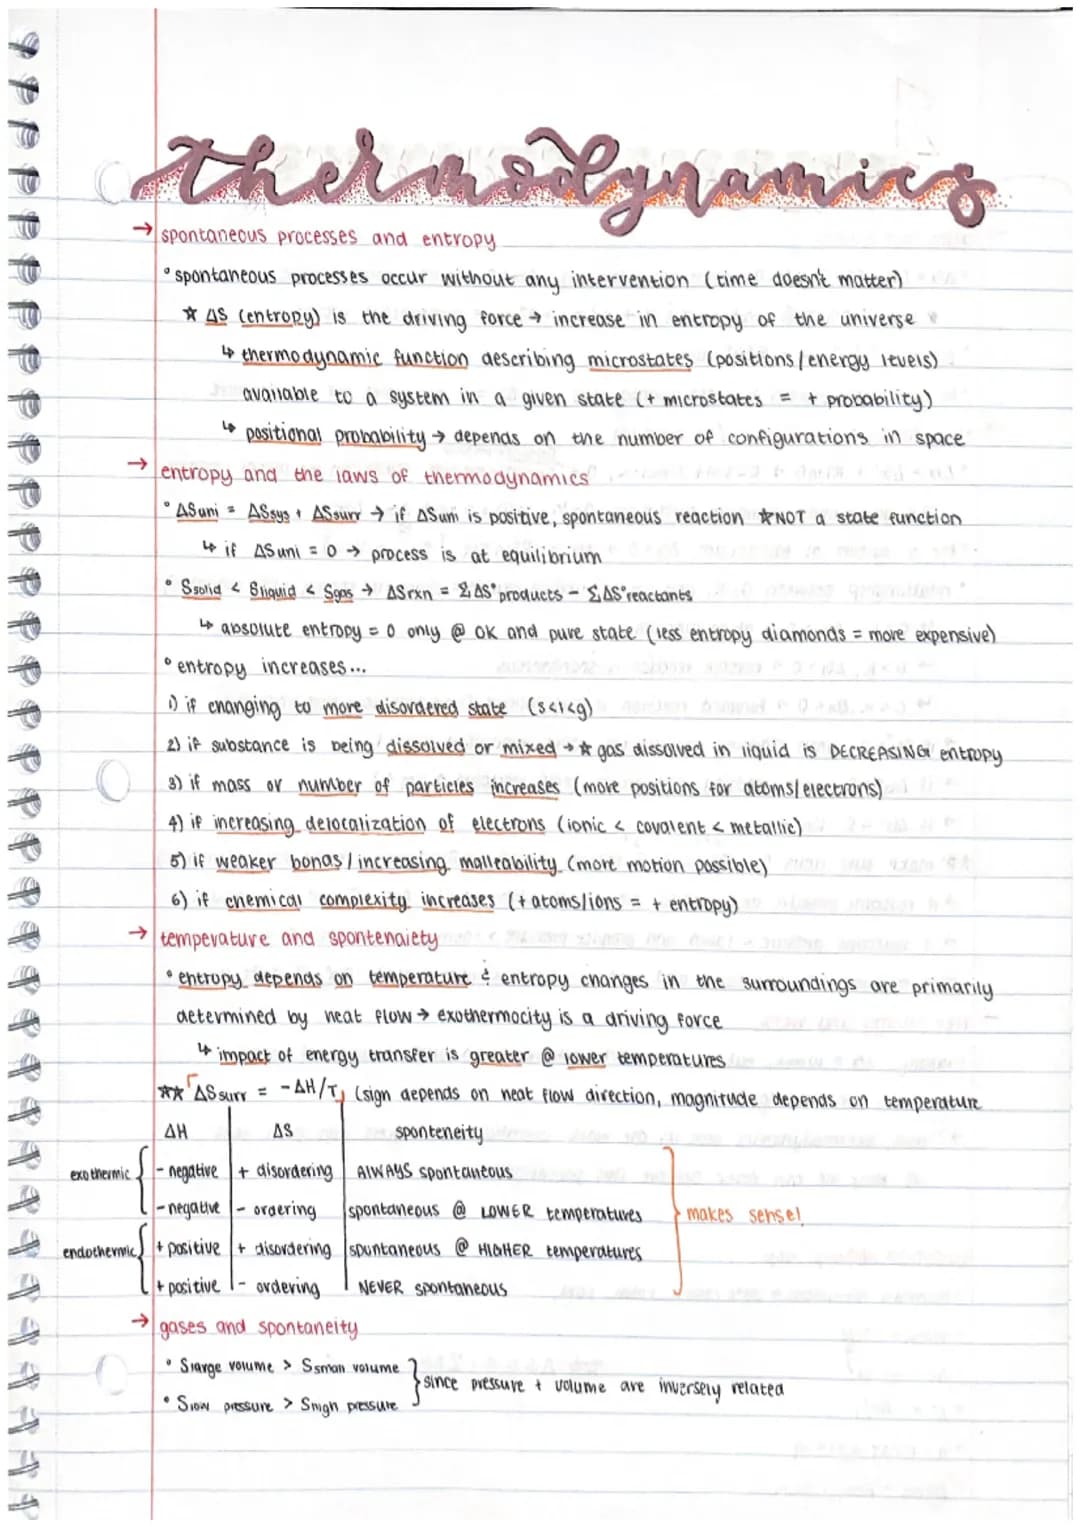 thermodynamics
→ spontaneous processes and entropy
° spontaneous processes occur without any intervention (time doesn't matter)
☆ ΔS (entropy) is the driving force → increase in entropy of the universe
↳ thermodynamic function describing microstates (positions/energy levels)
available to a system in a given state (+ microstates = + probability)
↳ positional probability → depends on the number of configurations in space
→ entropy and the laws of thermodynamics
° ΔSuni = ΔSsys + ΔSsurr → if ΔSuni is positive, spontaneous reaction ☆NOT a state function
↳ if ΔSuni = 0 → process is at equilibrium
° Ssolid < Sliquid < Sgas → ΔSrxn = ΣΔS°products - ΣΔS°reactants
↳ absolute entropy = 0 only @ 0K and pure state (less entropy diamonds = more expensive)
° entropy increases...
1) if changing to more disordered state (s<l<g)
2) if substance is being dissolved or mixed → ☆ gas dissolved in liquid is DECREASING entropy
3) if mass or number of particles increases (more positions for atoms/electrons)
4) if increasing delocalization of electrons (ionic < covalent < metallic)
5) if weaker bonds / increasing malleability (more motion possible)
6) if chemical complexity increases (+ atoms/ions = + entropy)
→ temperature and spontenaiety
° entropy depends on temperature & entropy changes in the surroundings are primarily
determined by heat flow → exothermocity is a driving force
↳ impact of energy transfer is greater @ lower temperatures
☆☆ ΔSsurr = -ΔH/T, (sign depends on heat flow direction, magnitude depends on temperature
ΔH ΔS sponteneity
exothermic { - negative + disordering ALWAYS spontaneous
- negative - ordering spontaneous @ LOWER temperatures } makes sense!
endothermic { + positive + disordering spontaneous @ HIGHER temperatures
+ positive - ordering NEVER spontaneous
→ gases and spontaneity
° Slarge volume > Ssmall volume } since pressure + volume are inversely related
° Slow pressure > Shigh pressure